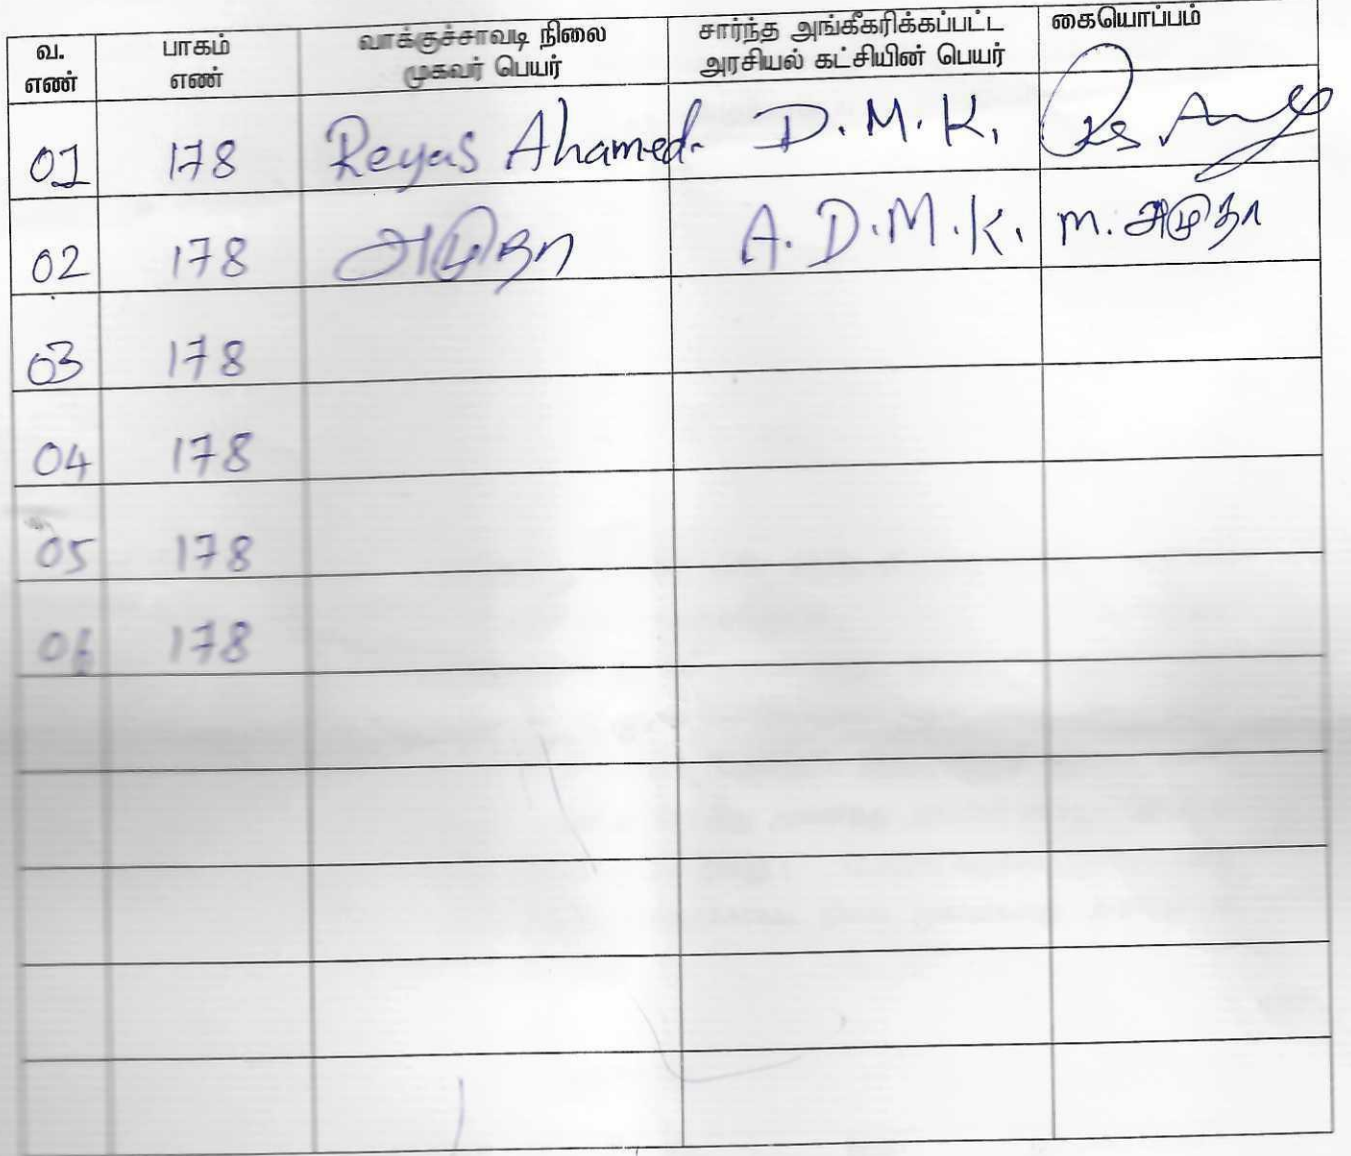 வ. எண் பாகம் எண் வாக்குச்சாவடி நிலை முகவர் பெயர் சார்ந்த அங்கீகரிக்கப்பட்ட அரசியல் கட்சியின் பெயர் கையொப்பம்
01 178 Reyas Ahamed. D.M.K.
02 178 அமுதா A.D.M.K. m. அமுதா
03 178
04 178
05 178
06 178